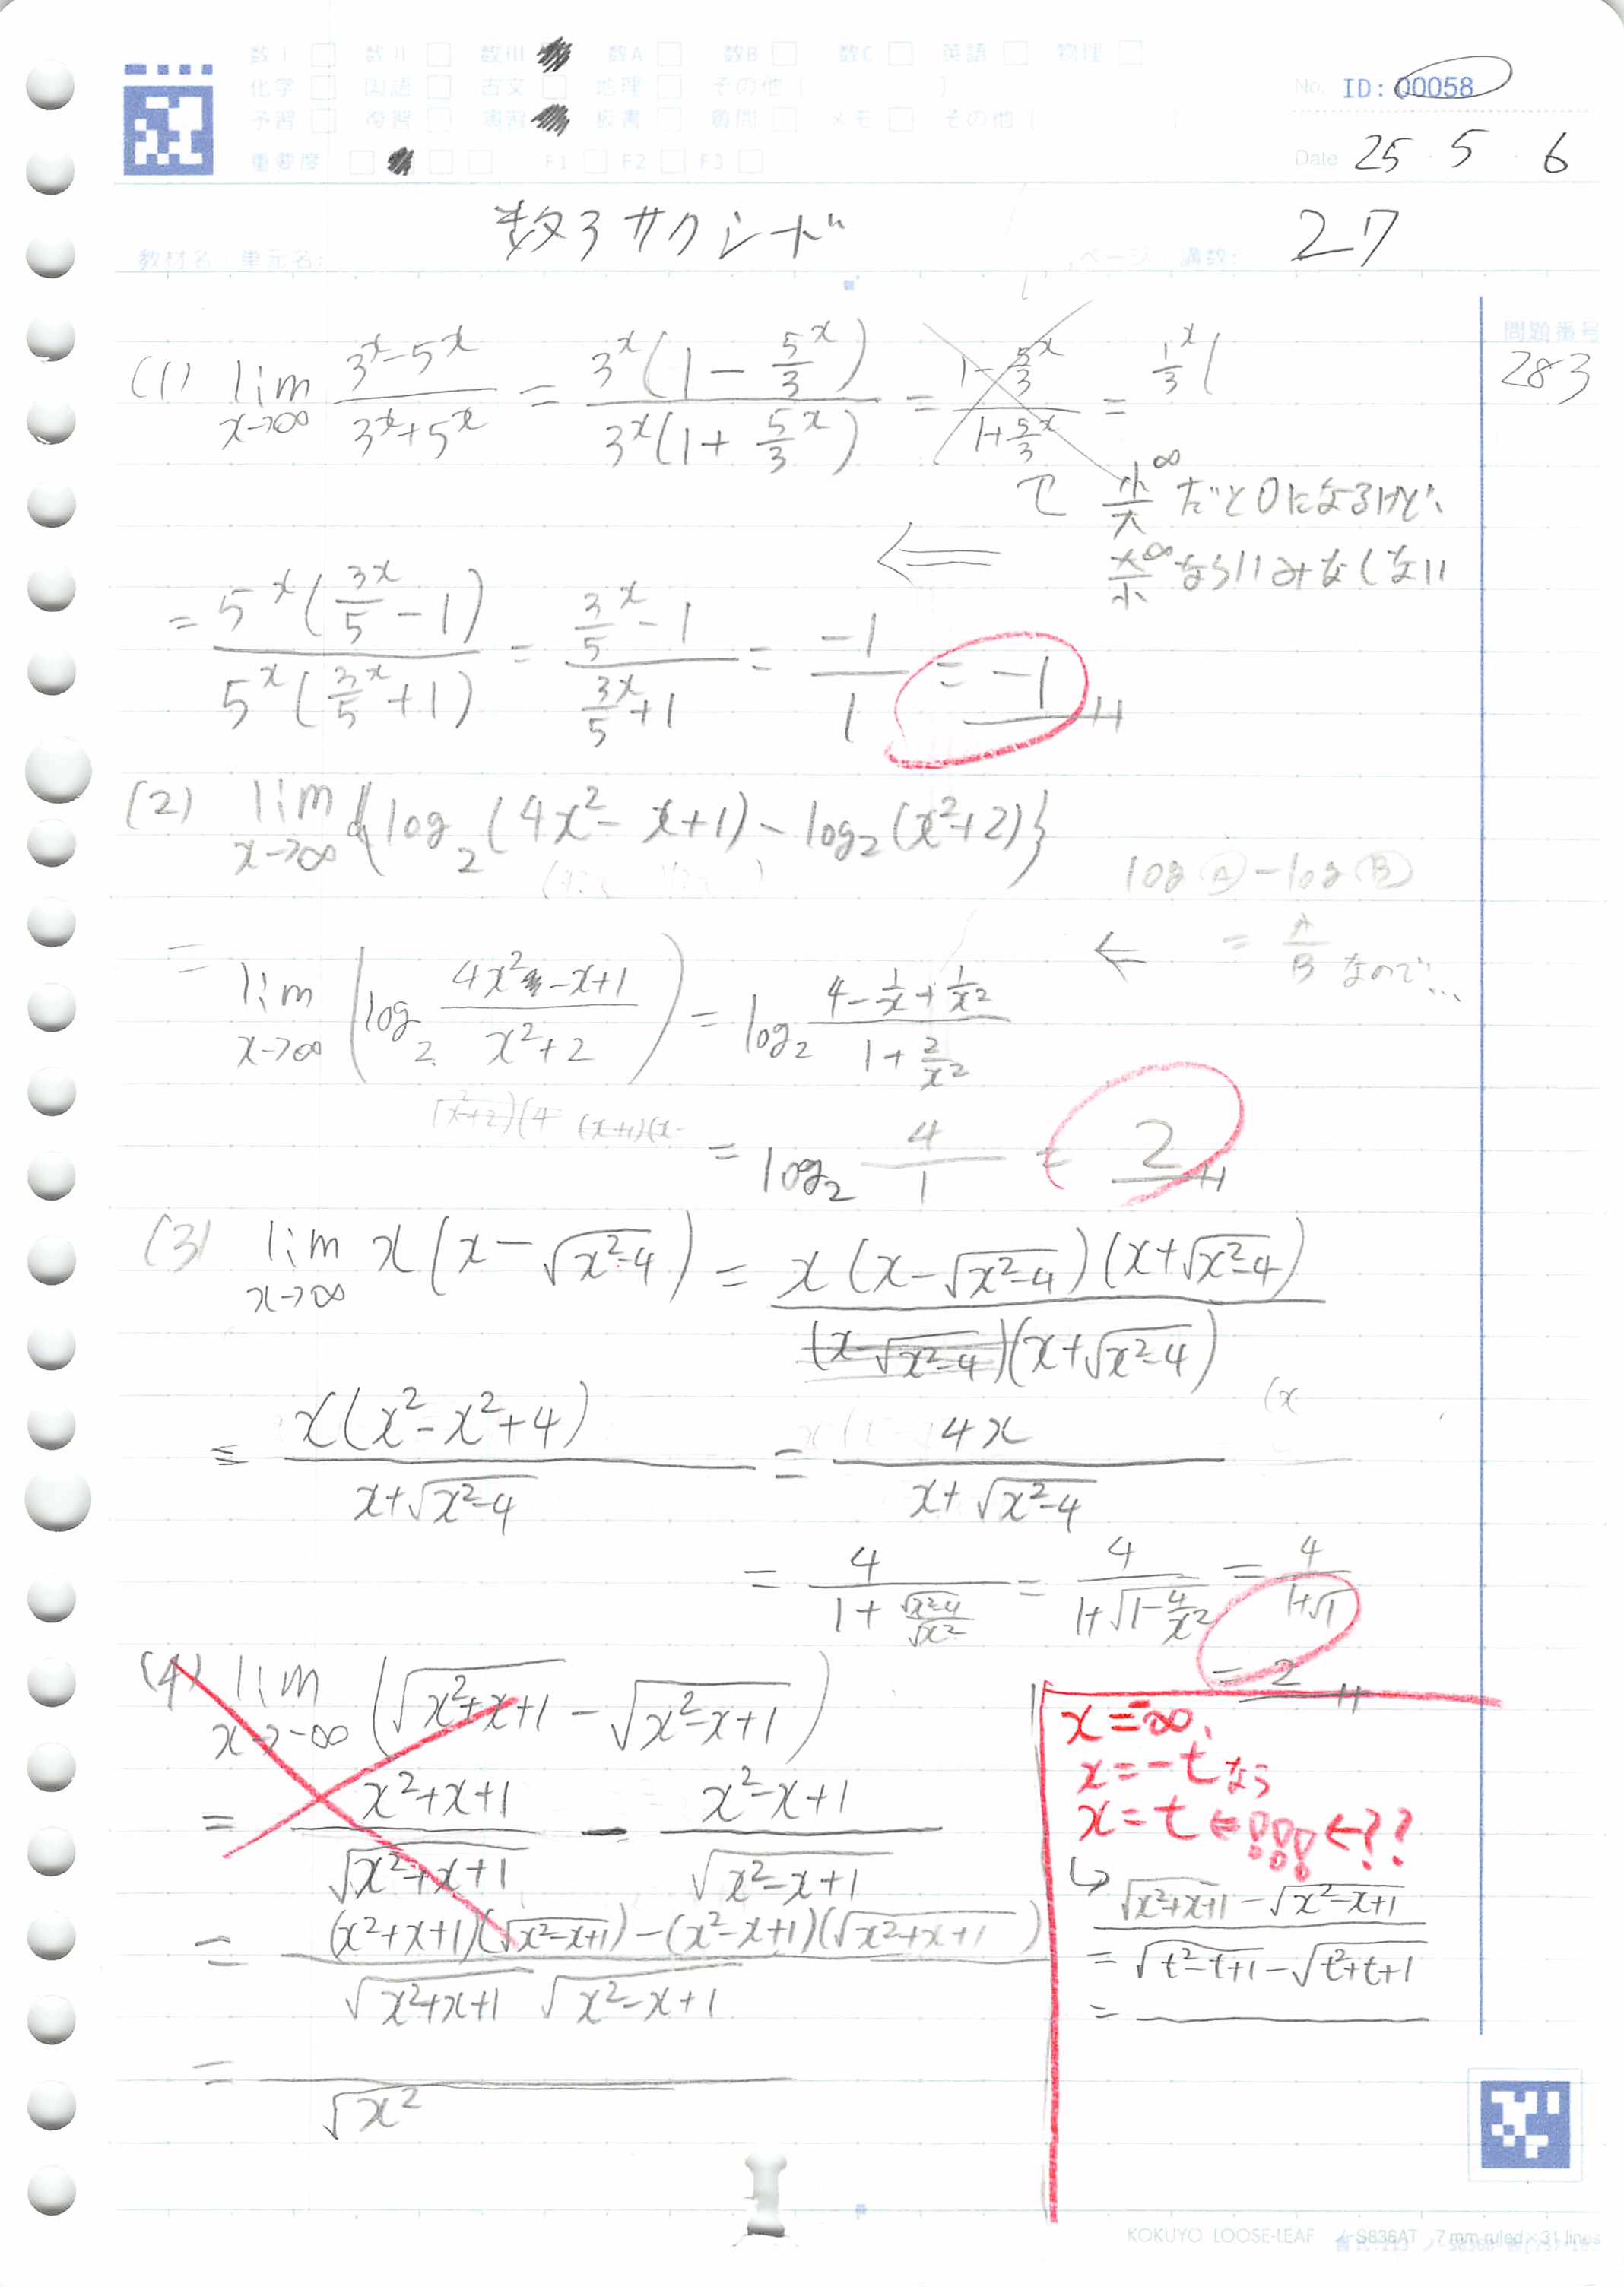 数I □ 数II □ 数III 数A □ 数B □ 数C □ 英語 □ 物理 □
化学 □ 国語 □ 古文 □ 地理 □ その他 [ ]
予習 □ 復習 □ 演習 板書 □ 質問 □ メモ □ その他 [ ]
重要度 □ □ □ F1 □ F2 □ F3 □
No. ID: 00058
Date 25 · 5 · 6
教材名・単元名: 数3サクシード ページ・講数: 27
問題番号
283
(1) lim x→∞ (3^x-5^x)/(3^x+5^x) = 3^x(1 - 5/3^x)/3^x(1 + 5/3^x) = (1-5/3^x)/(1+5/3^x) = 1/3^x(
で 小/大^∞ だと0になるけど、
⇐ 大/小^∞ ならいみなくない
= 5^x(3/5^x - 1)/5^x(3/5^x + 1) = (3/5^x - 1)/(3/5^x + 1) = -1/1 = -1
(2) lim x→∞ {log_2(4x²-x+1)-log_2(x²+2)}
log Ⓐ - log Ⓑ
← = A/B なので…
= lim x→∞ (log_2 (4x²-x+1)/(x²+2)) = log_2 (4-1/x+1/x²)/(1+2/x²)
(x²+2)(4 (x+1)(x-
= log_2 4/1 = 2
(3) lim x→∞ x(x-√(x²-4)) = x(x-√(x²-4))(x+√(x²-4))/(x-√(x²-4))(x+√(x²-4))
(x
= x(x²-x²+4)/(x+√(x²-4)) = 4x/(x+√(x²-4))
= 4/(1+√(x²-4)/√x²) = 4/(1+√(1-4/x²)) = 4/(1+√1)
= 2
(4) lim x→-∞ (√(x²+x+1) - √(x²-x+1))
= (x²+x+1)/√(x²+x+1) - (x²-x+1)/√(x²-x+1)
= ((x²+x+1)(√(x²-x+1))-(x²-x+1)(√(x²+x+1)))/(√(x²+x+1) √(x²-x+1))
= /√x²
x=-∞、
x=-tなら
x=t ←!!! ←??
↳ √(x²+x+1)-√(x²-x+1)
= √(t²-t+1)-√(t²+t+1)
=
KOKUYO LOOSE-LEAF ノ-S836AT 7 mm ruled×31 lines